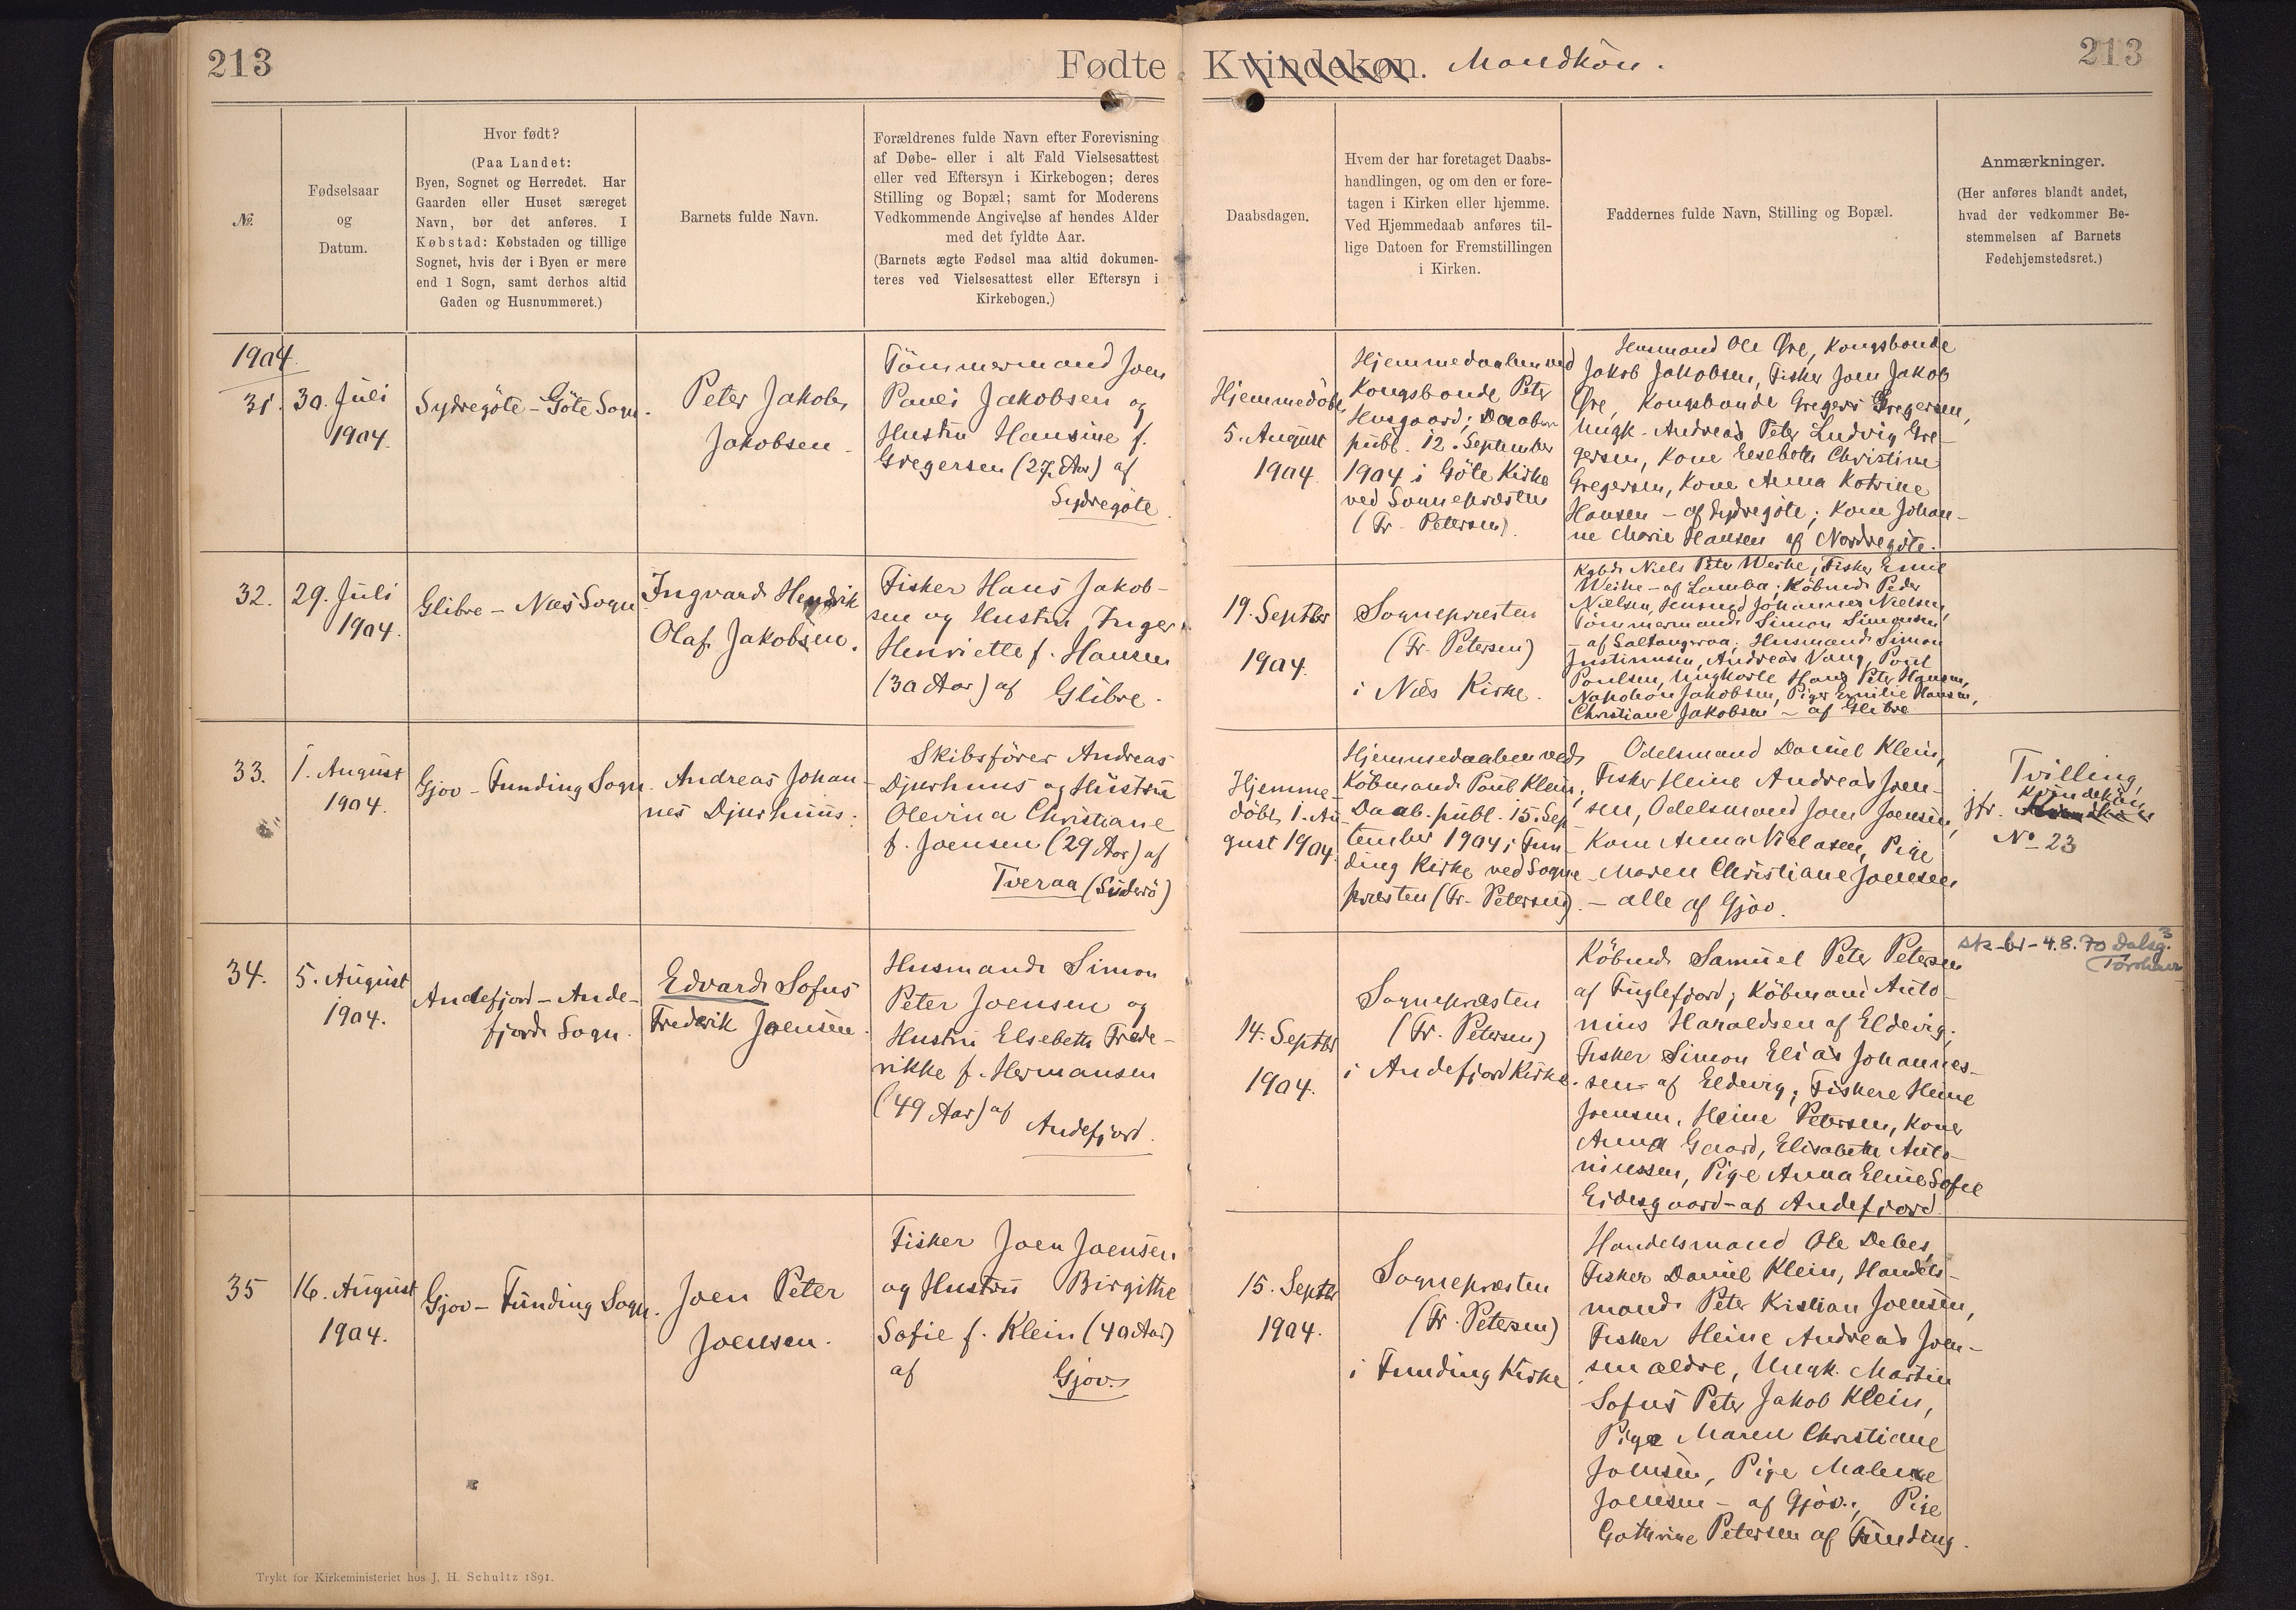 213
Fødte Kvindekøn. Mandkön.
213
№.
Fødselsaar
og
Datum.
Hvor født?
(Paa Landet:
Byen, Sognet og Herredet. Har
Gaarden eller Huset særeget
Navn, bør det anføres. I
Købstad: Købstaden og tillige
Sognet, hvis der i Byen er mere
end 1 Sogn, samt derhos altid
Gaden og Husnummeret.)
Barnets fulde Navn.
Forældrenes fulde Navn efter Forevisning
af Døbe- eller i alt Fald Vielsesattest
eller ved Eftersyn i Kirkebogen; deres
Stilling og Bopæl; samt for Moderens
Vedkommende Angivelse af hendes Alder
med det fyldte Aar.
(Barnets ægte Fødsel maa altid dokumen-
teres ved Vielsesattest eller Eftersyn i
Kirkebogen.)
Daabsdagen.
Hvem der har foretaget Daabs-
handlingen, og om den er fore-
tagen i Kirken eller hjemme.
Ved Hjemmedaab anføres til-
lige Datoen for Fremstillingen
i Kirken.
Faddernes fulde Navn, Stilling og Bopæl.
Anmærkninger.
(Her anføres blandt andet,
hvad der vedkommer Be-
stemmelsen af Barnets
Fødehjemstedsret.)
1904.
31.
30. Juli
1904.
Sydregöte - Göte Sogn.
Peter Jakob
Jakobsen.
Tömmermand Joen
Pauli Jakobsen og
Hustru Hansine f.
Gregersen (27 Aar) af
Sydregöte.
Hjemmedöbt
5. August
1904
Hjemmedaaben ved
Kongsbonde Peter
Husgaard; Daaben
publ. 12. September
1904 i Göte Kirke
ved Sognepræsten
(Fr. Petersen).
Husmand Ole Øre, Kongsbonde
Jakob Jakobsen, Fisker Joen Jakob
Øre, Kongsbonde Gregers Gregersen,
Ungk. Andreas Peter Ludvig Gre-
gersen, Kone Elsebeth Christine
Gregersen, Kone Anna Katrine
Hansen - af Sydregöte; Kone Johan-
ne Marie Hansen af Nordregöte.
32.
29. Juli
1904.
Glibre - Næs Sogn.
Ingvard Hendrik
Olaf Jakobsen.
Fisker Hans Jakob-
sen og Hustru Inger
Henriette f. Hansen
(30 Aar) af Glibre.
19. Septbr
1904.
Sognepræsten
(Fr. Petersen)
i Næs Kirke.
Kgbd. Niels Peter Weihe, Fisker Emil
Weihe - af Lamba; Köbmd. Peder
Nielsen, Husmd Johannes Nielsen,
Tömmermand Simon Simonsen
- af Saltangeraa; Husmand Simon
Justinusen, Andreas Vang, Poul
Poulsen, Ungkarle Hans Peter Hansen,
Napoleon Jakobsen, Piger Emilie Hansen,
Christiane Jakobsen - af Glibre
33.
1. August
1904.
Gjov - Funding Sogn.
Andreas Johan-
nes Djurhuus.
Skibsförer Andreas
Djurhuus og Hustru
Olevina Christiane
f. Joensen (29 Aar) af
Tveraa (Suderö)
Hjemme-
döbt 1. Au-
gust 1904.
Hjemmedaaben ved
Köbmand Poul Klein;
Daab. publ. 15. Sep-
tember 1904 i Fun-
ding Kirke ved Sogne-
præsten (Fr. Petersen).
Odelsmand Daniel Klein,
Fisker Heine Andreas Joen-
sen, Odelsmand Joen Joensen,
Kone Anna Nielasen, Pige
Maren Christiane Joensen
- alle af Gjov.
Tvilling,
Kvindekön
jfr.
No 23
34.
5. August
1904.
Andefjord - Ande-
fjord Sogn.
Edvard Sofus
Frederik Joensen.
Husmand Simon
Peter Joensen og
Hustru Elsebeth Frede-
rikke f. Hermansen
(49 Aar) af
Andefjord.
14. Septbr
1904.
Sognepræsten
(Fr. Petersen)
i Andefjord Kirke.
Köbmd. Samuel Peter Petersen
af Fuglefjord; Köbmand Anto-
nius Haraldsen af Eldevig;
Fisker Simon Elias Johannes-
sen af Eldevig; Fiskere Heine
Joensen, Heine Petersen, Koner
Anna Gaard, Elisabeth Anto-
niussen, Pige Anna Eline Sofie
Eidesgaard - af Andefjord.
sk-br - 4.8.70 Dalsg. 3
Torshavn
35
16. August
1904.
Gjov - Funding Sogn.
Joen Peter
Joensen.
Fisker Joen Joensen
og Hustru Birgithe
Sofie f. Klein (40 Aar)
af
Gjov.
15. Septbr
1904.
Sognepræsten
(Fr. Petersen)
i Funding Kirke
Handelsmand Ole Debes,
Fisker Daniel Klein, Handels-
mand Peter Kristian Joensen,
Fisker Heine Andreas Joen-
sen ældre, Ungk. Martin
Sofus Peter Jakob Klein,
Pige Maren Christiane
Joensen, Pige Malene
Joensen - af Gjov.; Pige
Cathrine Petersen af Funding.
Trykt for Kirkeministeriet hos J. H. Schultz 1891.